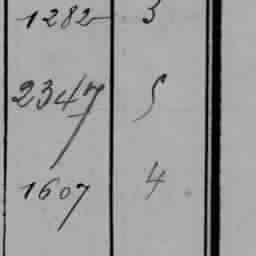 1282 3
2347 5
1607 4